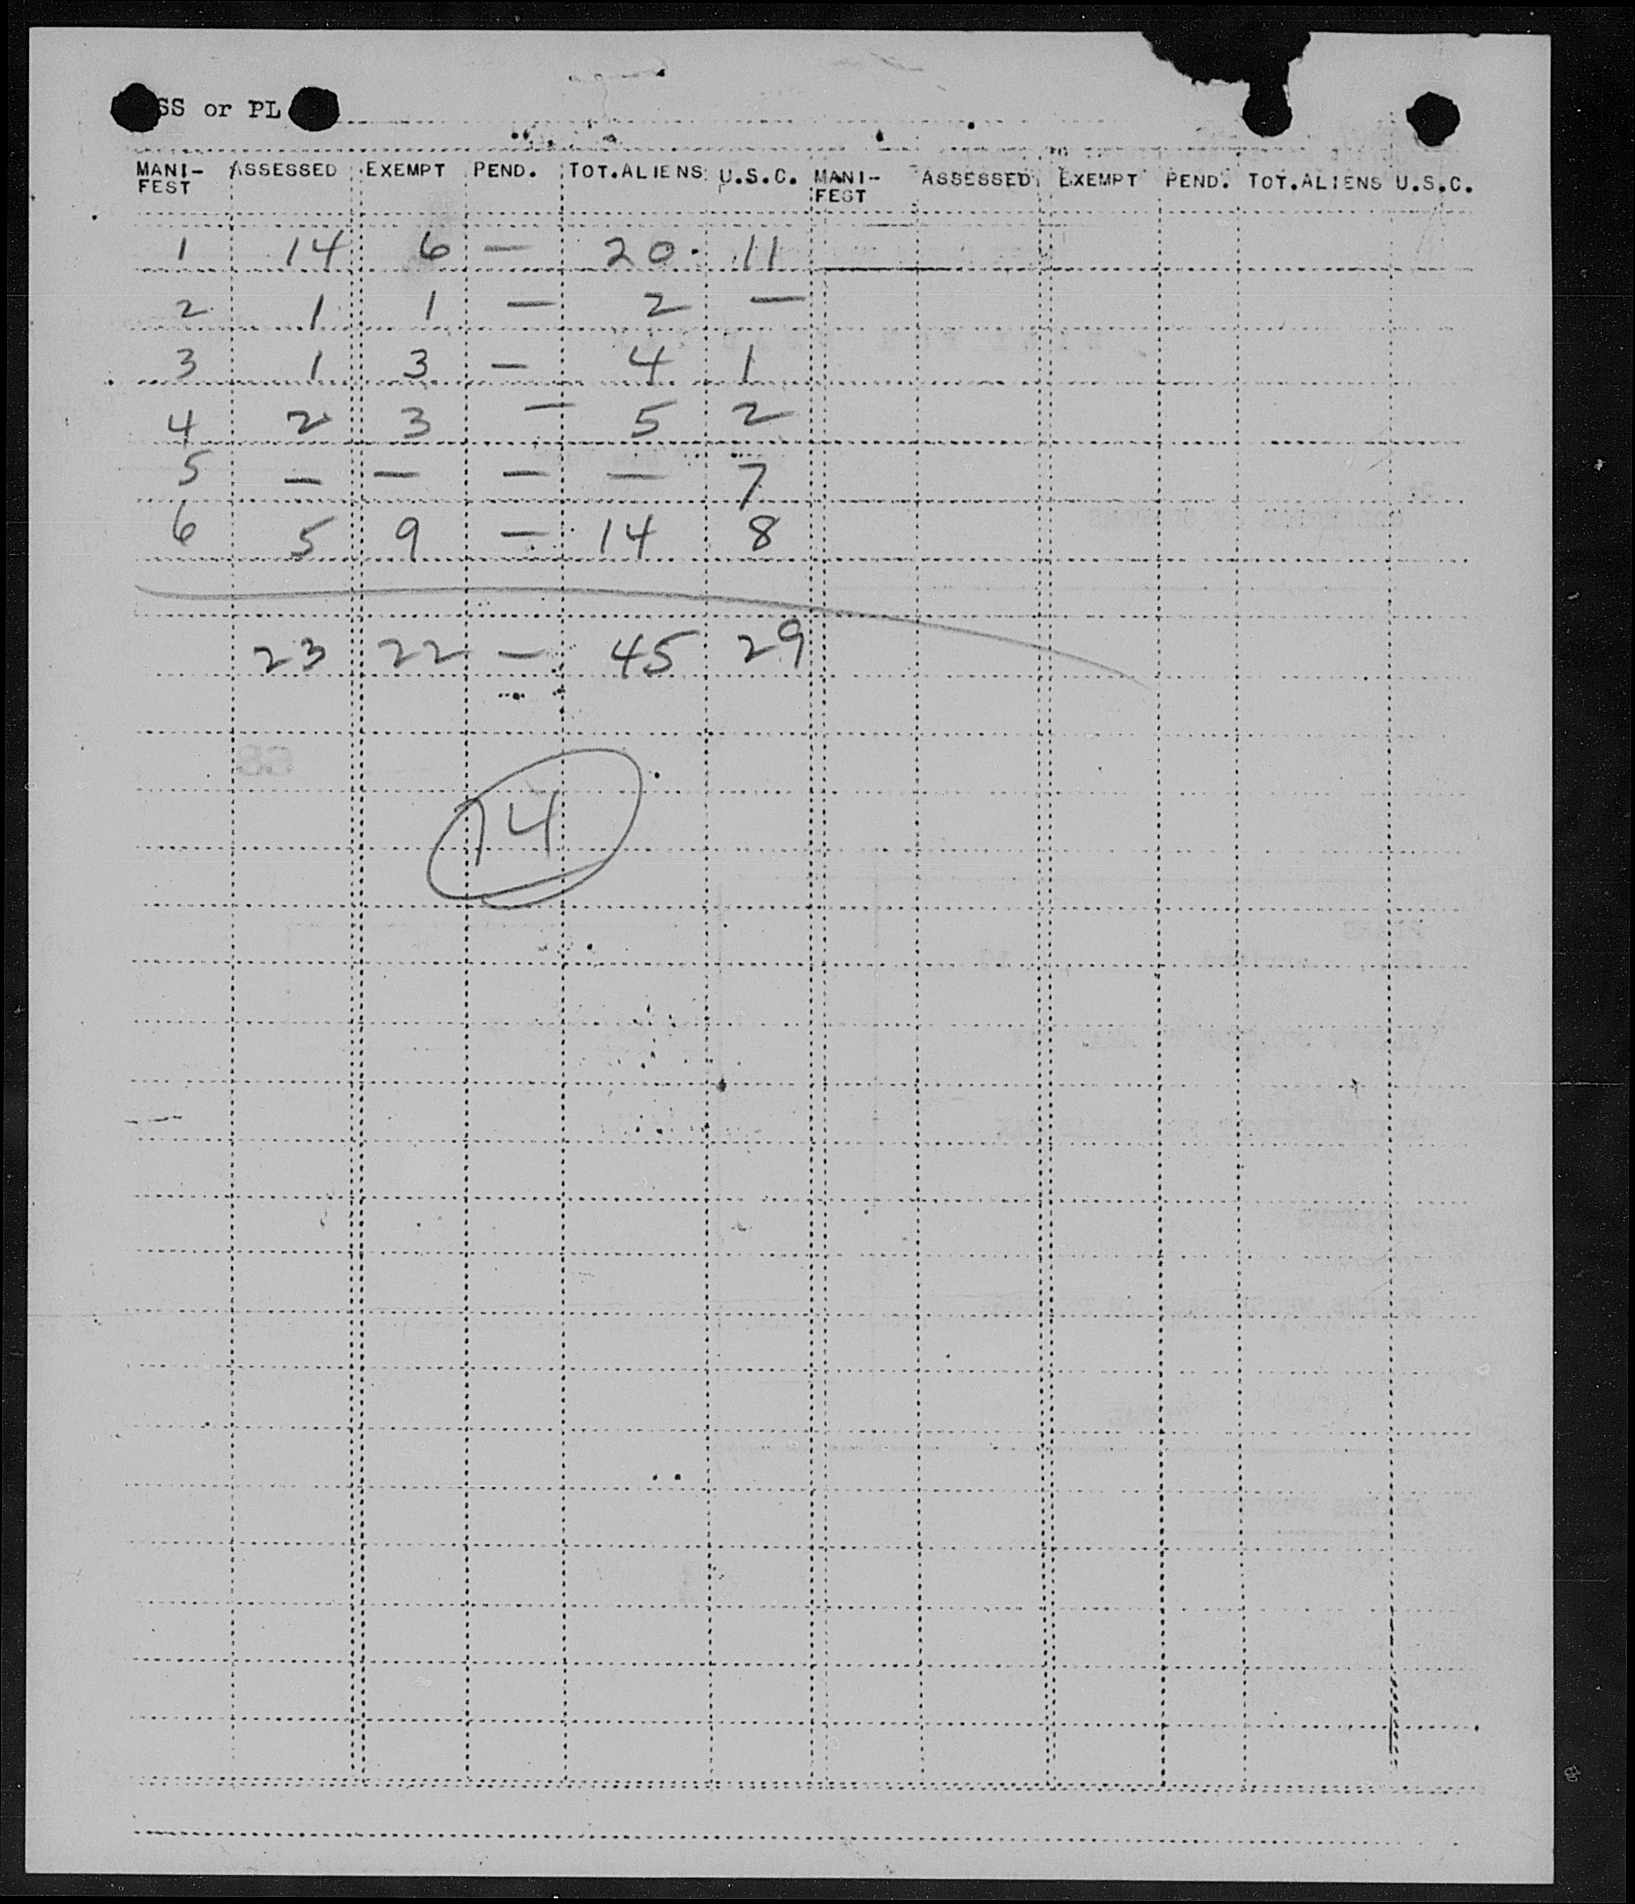 SS or PL
MANI- ASSESSED EXEMPT PEND. TOT.ALIENS U.S.C. MANI- ASSESSED EXEMPT PEND. TOT.ALIENS U.S.C.
FEST FEST
1 14 6 — 20. 11
2 1 1 — 2 —
3 1 3 — 4 1
4 2 3 — 5 2
5 — — — — 7
6 5 9 — 14 8
23 22 — 45 29
14